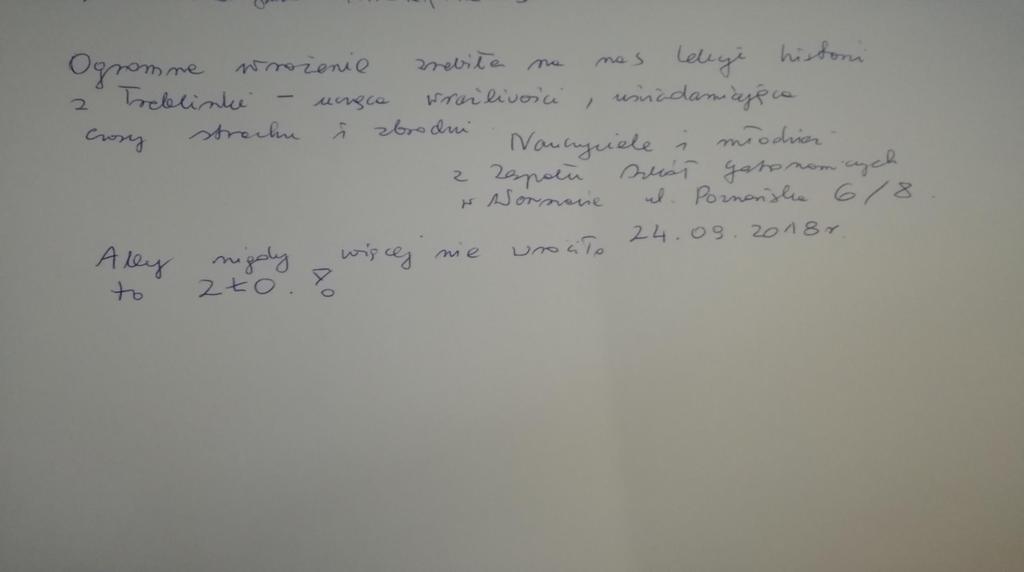 Ogromne wrażenie zrobiła na nas lekcja historii
z Treblinki - ucząca wrażliwości, uświadamiająca
czasy strachu i zbrodni
Nauczyciele i młodzież
z Zespołu Szkół Gastronomicznych
w Warszawie ul. Poznańska 6/8.
24.09.2018r.
Aby nigdy więcej nie wróciło
to ZŁO.!